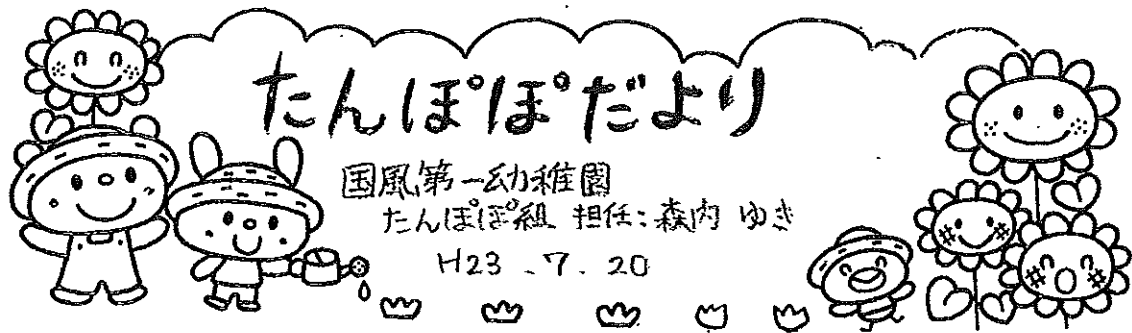 たんぽぽだより
国風第一幼稚園
たんぽぽ組 担任：森内 ゆき
H23.7.20